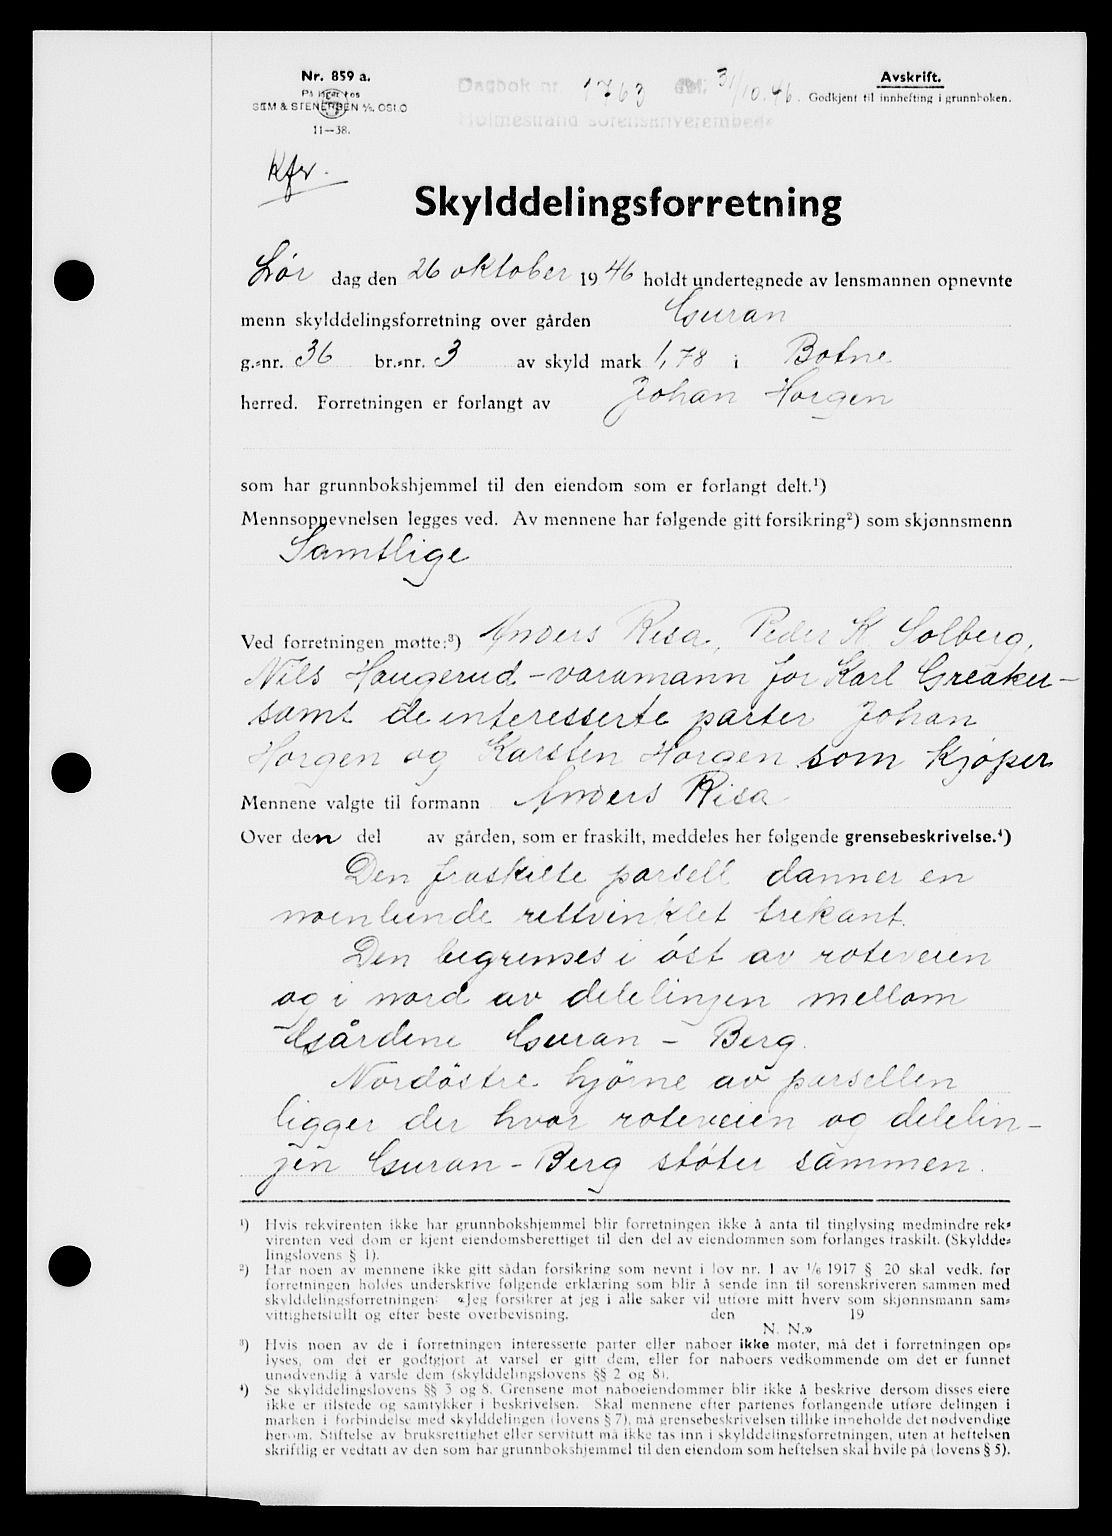 Nr. 859 a.
På lager hos
SEM & STENERSEN A/S, OSLO
11—38.
Dagbok nr. 1763 31/10.46.
Holmestrand sorenskriverembede
Avskrift.
Godkjent til innhefting i grunnboken.
Kfr.
Skylddelingsforretning
Lør dag den 26 oktober 1946 holdt undertegnede av lensmannen opnevnte
menn skylddelingsforretning over gården Guran
g.-nr. 36 br.-nr. 3 av skyld mark 1,78 i Botne
herred. Forretningen er forlangt av Johan Horgen
som har grunnbokshjemmel til den eiendom som er forlangt delt.¹)
Mennsopnevnelsen legges ved. Av mennene har følgende gitt forsikring²) som skjønnsmenn
Samtlige
Ved forretningen møtte:³) Anders Risa, Peder K Solberg,
Nils Haugerud – varamann for Karl Greaker –
samt de interesserte parter Johan
Horgen og Karsten Horgen som kjøper
Mennene valgte til formann Anders Risa
Over den del av gården, som er fraskilt, meddeles her følgende grensebeskrivelse.⁴)
Den fraskilte parsell danner en
noenlunde rettvinklet trekant.
Den begrenses i øst av roteveien
og i nord av delelinjen mellom
Gårdene Guran – Berg.
Nordøstre hjørne av parsellen
ligger der hvor roteveien og delelin-
jen Guran – Berg støter sammen.
¹) Hvis rekvirenten ikke har grunnbokshjemmel blir forretningen ikke å anta til tinglysing medmindre rek-
virenten ved dom er kjent eiendomsberettiget til den del av eiendommen som forlanges fraskilt. (Skyldde-
lingslovens § 1).
²) Har noen av mennene ikke gitt sådan forsikring som nevnt i lov nr. 1 av 1/6 1917 § 20 skal vedk. før
forretningen holdes underskrive følgende erklæring som blir å sende inn til sorenskriveren sammen med
skylddelingsforretningen: «Jeg forsikrer at jeg i alle saker vil utføre mitt hverv som skjønnsmann sam-
vittighetsfullt og efter beste overbevisning. den 19
N. N.»
³) Hvis noen av de i forretningen interesserte parter eller naboer ikke møter, må det i forretningen op-
lyses, om det er godtgjort at varsel er gitt dem, eller for naboers vedkommende om det er funnet
unødvendig å varsle dem (skylddelingslovens §§ 2 og 8).
⁴) Se skylddelingslovens §§ 3 og 8. Grensene mot naboeiendommer blir ikke å beskrive dersom disses eiere
ikke er tilstede og samtykker i beskrivelsen. Skal mennene efter partenes forlangende utføre delingen i
marken i forbindelse med skylddelingen (lovens § 7), må grensebeskrivelsen tillike inneholde det nødvendige
herom. Stiftelse av bruksrettighet eller servitutt må ikke tas inn i skylddelingsforretningen, uten at heftelsen
skriftlig er vedtatt av den som har grunnbokshjemmel til den eiendom som heftelsen skal hvile på (lovens § 5).